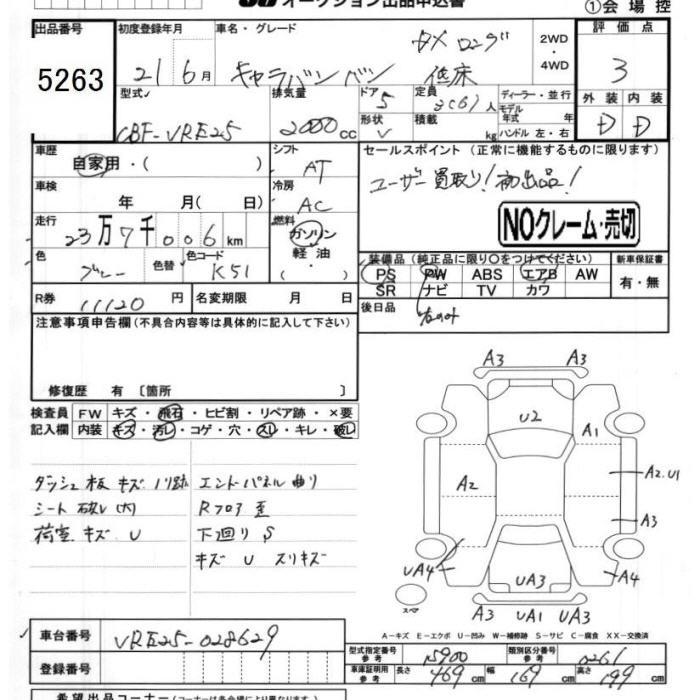 オークション出品申込書
①会場控
出品番号
5263
初度登録年月
21 6月
車名・グレード
キャラバンバン
DXロング
低床
2WD
・
4WD
評価点
3
外装 内装
D D
型式
CBF-VRE25
排気量
2000cc
ドア
5
定員
3(6)人
形状
V
積載
kg
ディーラー・並行
モデル
年式 年式
ハンドル 左・右
車歴
自家用・( )
シフト
AT
車検
年 月( 日)
冷房
AC
走行
23万7千006km
燃料
ガソリン
軽油
・
色
グレー
色替
色コード
K51
R券
11120円
名変期限 月 日
セールスポイント (正常に機能するものに限ります)
ユーザー買取り!初出品!
NOクレーム・売切
装備品 (純正品に限り〇をつけてください)
PS PW ABS エアB AW
SR ナビ TV カワ
新車保証書
有・無
後日品
右のみ
注意事項申告欄(不具合内容等は具体的に記入して下さい)
修復歴 有 〔箇所 〕
検査員 FW キズ・飛石・ヒビ割・リペア跡・×要
記入欄 内装 キズ・汚レ・コゲ・穴・スレ・キレ・破レ
ダッシュ板キズ ノリ跡
シート破レ(大)
荷室 キズ U
エンドパネル曲り
Rフロア歪
下回りS
キズ U スリキズ
A3 A3
U2
A1
A2
A2.U1
A3
UA4
UA3
A4
スペア
A3 UA1 UA3
A-キズ E-エクボ U-凹み W-補修跡 S-サビ C-腐食 XX-交換済
車台番号
VRE25-028629
登録番号
型式指定番号
参考
15900
類別区分番号
参考
0261
車庫証明用
参考
長さ 469cm 幅 169cm 高さ 199cm
希望出品コーナー